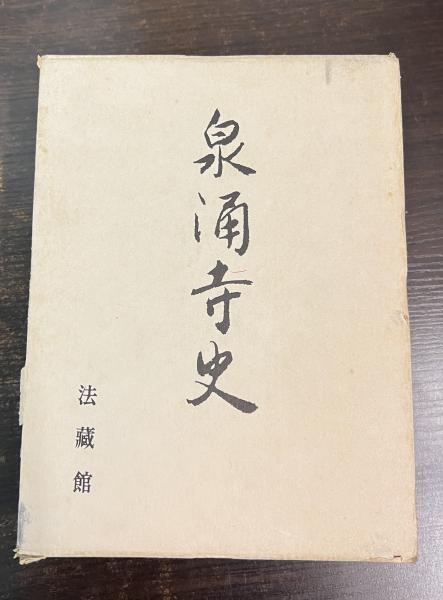 泉涌寺史
法藏館